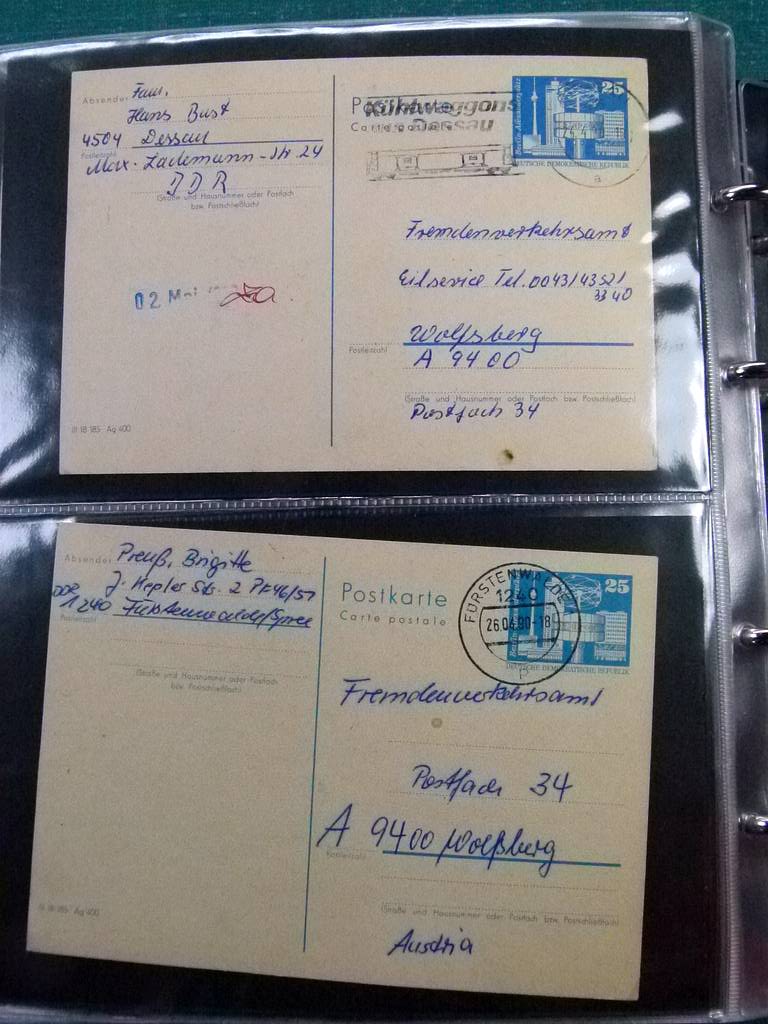 Absender Fam.
Hans Bust
4504 Dessau
Postleitzahl
Max-Lademann-Str 24
DDR
(Straße und Hausnummer oder Postfach
bzw. Postschließfach)
02 Mai
III 18 185 Ag 400
Postkarte
Carte postale
Kühlwaggons
Dessau
25
DEUTSCHE DEMOKRATISCHE REPUBLIK
a
Fremdenverkehrsamt
Eilservice Tel. 0043/43521
3340
Wolfsberg
Postleitzahl
A 9400
(Straße und Hausnummer oder Postfach bzw. Postschließfach)
Postfach 34
Absender Preuß, Brigitte
J. Kepler Str. 2 PF 46/57
DDR
1240 Fürstenwalde/Spree
Postleitzahl
(Straße und Hausnummer oder Postfach
bzw. Postschließfach)
III 18 185 Ag 400
Postkarte
Carte postale
FÜRSTENWALDE
1240
26.04.90-18
Berlin
25
DEUTSCHE DEMOKRATISCHE REPUBLIK
Fremdenverkehrsamt
Postfach 34
A 9400 Wolfsberg
Postleitzahl
(Straße und Hausnummer oder Postfach bzw. Postschließfach)
Austria